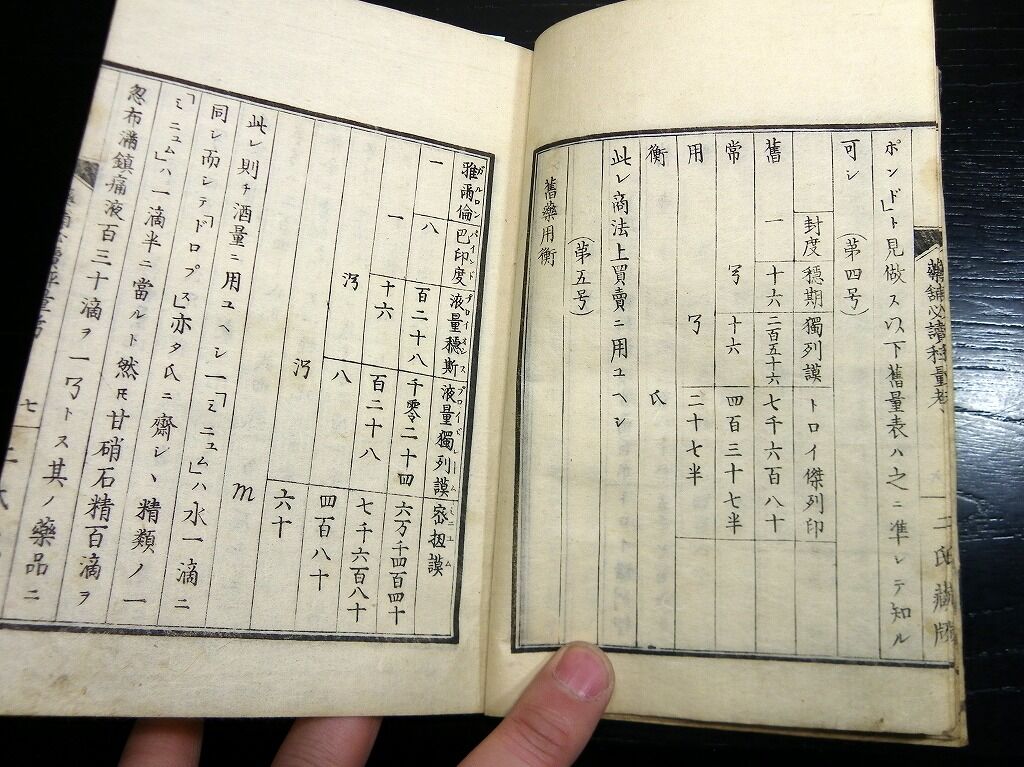 藥舖必讀秤量考
二氏藏版
ポンド」ト見做ス以下舊量表ハ之ニ準レテ知ル
可シ
(第四号)
封度 穏期 獨列謨 トロイ傑列印
舊 一 十六 二百五十六 七千六百八十
常 十六 四百三十七半
用 二十七半
衡 氏
此レ商法上買賣ニ用ユヘシ
(第五号)
舊藥用衡
雅爾倫 巴印度 液量穏斯 液量獨列謨 密扭謨
ガルロン パインド
一 八 百二十八 千零二十四 六万千四百四十
一 十六 百二十八 七千六百八十
八 四百八十
六十
m
此レ則チ酒量ニ用ユヘシ一「ミニュム」ハ水一滴ニ
同レ而シテ「ドロプス」亦タ氏ニ齋シ、精類ノ一
「ミニュム」ハ一滴半ニ當ルト然𪜈甘硝石精百滴ヲ
忽布滿鎮痛液百三十滴ヲ一トス其ノ藥品ニ
七